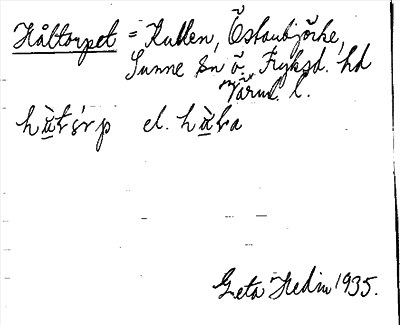 Håltorpet = Kullen, Östanbjörke,
Sunne sn ö. Fryksd. hd
Värml. l.
hå̀ltŏrp el. hå̀la
Greta Hedin 1935.